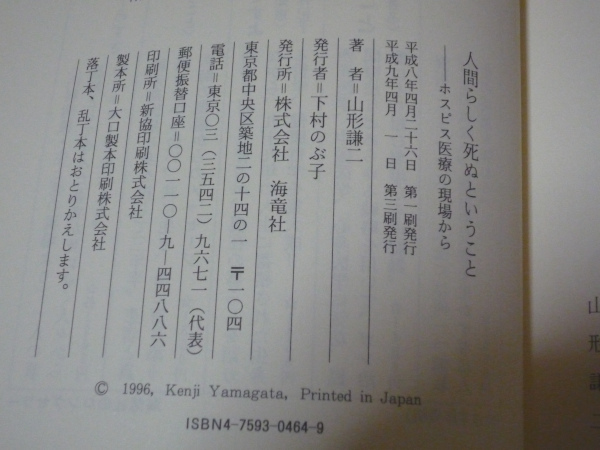 人間らしく死ぬということ
――ホスピス医療の現場から
平成八年四月二十六日　第一刷発行
平成九年四月　一　日　第三刷発行
著　者＝山形謙二
発行者＝下村のぶ子
発行所＝株式会社　海竜社
東京都中央区築地二の十四の一　〒一〇四
電話＝東京〇三（三五四二）九六七一（代表）
郵便振替口座＝〇〇一一〇―九―四四八八六
印刷所＝新協印刷株式会社
製本所＝大口製本印刷株式会社
落丁本、乱丁本はおとりかえします。
© 1996, Kenji Yamagata, Printed in Japan
ISBN4-7593-0464-9
山形謙二